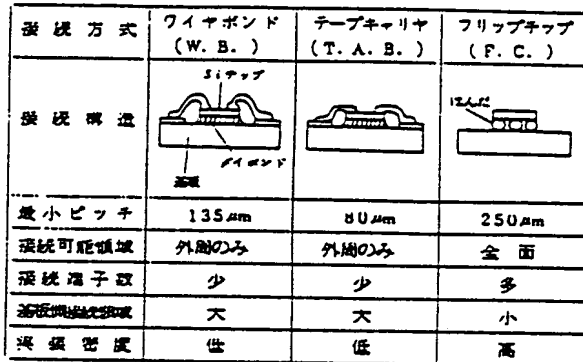 接続方式 ワイヤボンド (W.B.) テープキャリヤ (T.A.B.) フリップチップ (F.C.)
接続構造
Siチップ
ダイボンド
基板
はんだ
最小ピッチ 135μm 80μm 250μm
接続可能領域 外周のみ 外周のみ 全面
接続端子数 少 少 多
基板側接続領域 大 大 小
実装密度 低 低 高